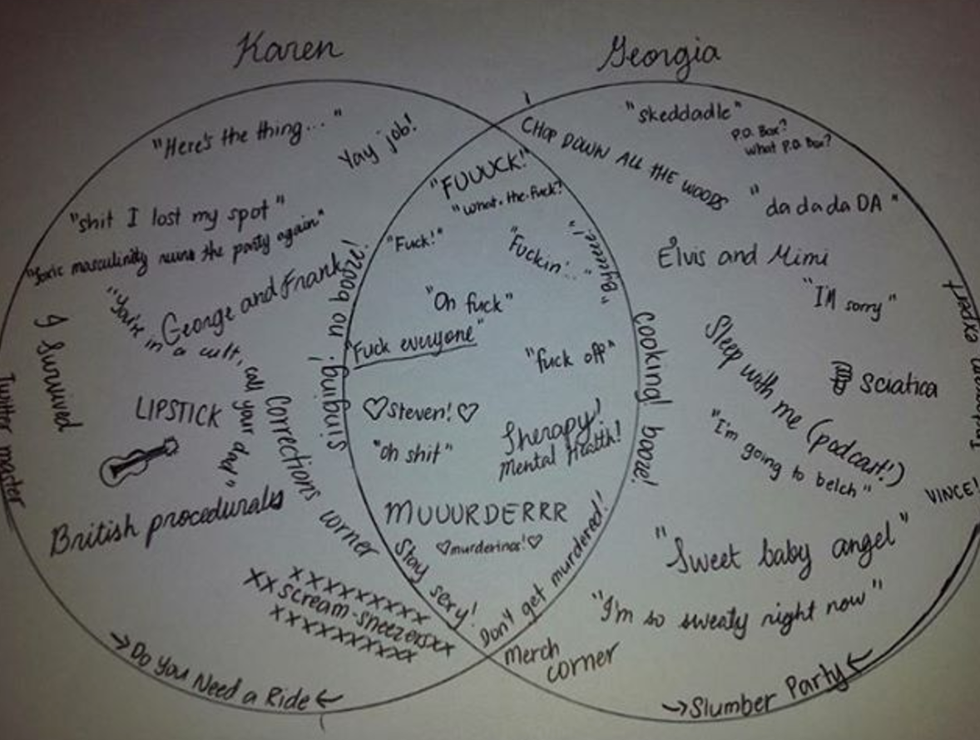 Karen
Georgia
"Here's the thing..."
Yay job!
"shit I lost my spot"
"Toxic masculinity ruins the party again"
George and Frank
"You're in a cult, call your dad"
I Survived
Twitter master
LIPSTICK
British procedurals
corrections corner
singing! no booze!
xxxxxxxxx
xxscream-sneezersxx
xxxxxxxxxx
→Do You Need a Ride←
"FUUUCK!"
"what-the-fuck?"
"Fuck!"
"Fuckin'..."
"Byeeee!"
"Oh fuck"
"Fuck everyone"
"fuck off"
♡Steven!♡
"oh shit"
Therapy!
Mental Health!
MUUURDERRR
♡murderinos!♡
Stay sexy!
Don't get murdered!
CHOP DOWN ALL THE WOODS
"skeddadle"
P.O. Box?
what P.O. Box?
"da da da DA"
Elvis and Mimi
"I'M sorry"
Sleep with me (podcast!)
Sciatica
cooking! booze!
"I'm going to belch"
VINCE!
"Sweet baby angel"
"I'm so sweaty right now"
merch
corner
→Slumber Party←